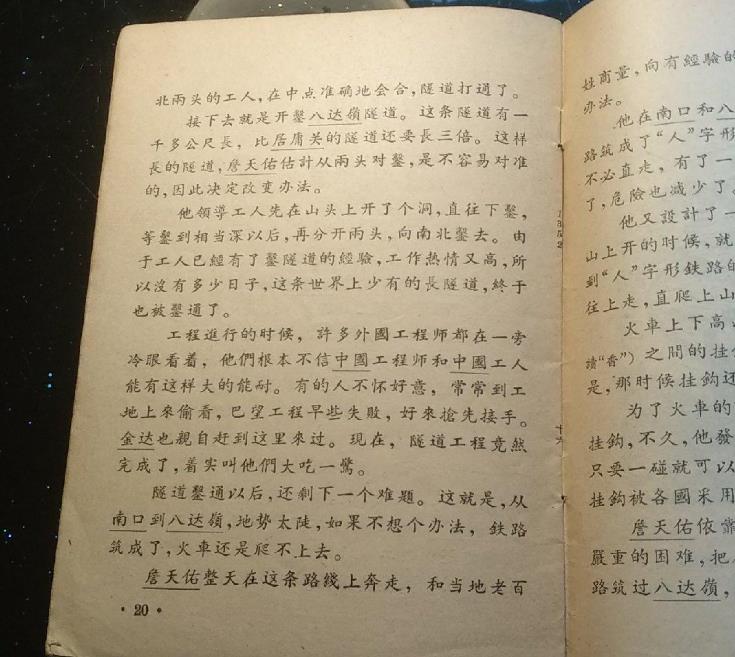 北兩头的工人，在中点准确地会合，隧道打通了。
接下去就是开鑿八达嶺隧道。这条隧道有一
千多公尺長，比居庸关的隧道还要長三倍。这样
長的隧道，詹天佑估計从兩头对鑿，是不容易对准
的，因此决定改变办法。
他領导工人先在山头上开了个洞，直往下鑿，
等鑿到相当深以后，再分开兩头，向南北鑿去。由
于工人已經有了鑿隧道的經驗，工作热情又高，所
以沒有多少日子，这条世界上少有的長隧道，終于
也被鑿通了。
工程進行的时候，許多外國工程师都在一旁
冷眼看着，他們根本不信中國工程师和中國工人
能有这样大的能耐。有的人不怀好意，常常到工
地上來偷看，巴望工程早些失敗，好來搶先接手。
金达也親自赶到这里來过。現在，隧道工程竟然
完成了，着实叫他們大吃一驚。
隧道鑿通以后，还剩下一个难題。这就是，从
南口到八达嶺，地势太陡，如果不想个办法，鉄路
筑成了，火車还是爬不上去。
詹天佑整天在这条路綫上奔走，和当地老百
·20·
姓商量，向有經驗的
办法。
他在南口和八
路筑成了“人”字形
不必直走，有了一
了，危險也減少了。
他又設計了一
山上开的时候，就
到“人”字形鉄路的
往上走，直爬上山
火車上下高
讀“香”）之間的挂
是，那时候挂鈎还
为了火車的
挂鈎，不久，他發
只要一碰就可以
挂鈎被各國采用
詹天佑依靠
嚴重的困难，把
路筑过八达嶺，